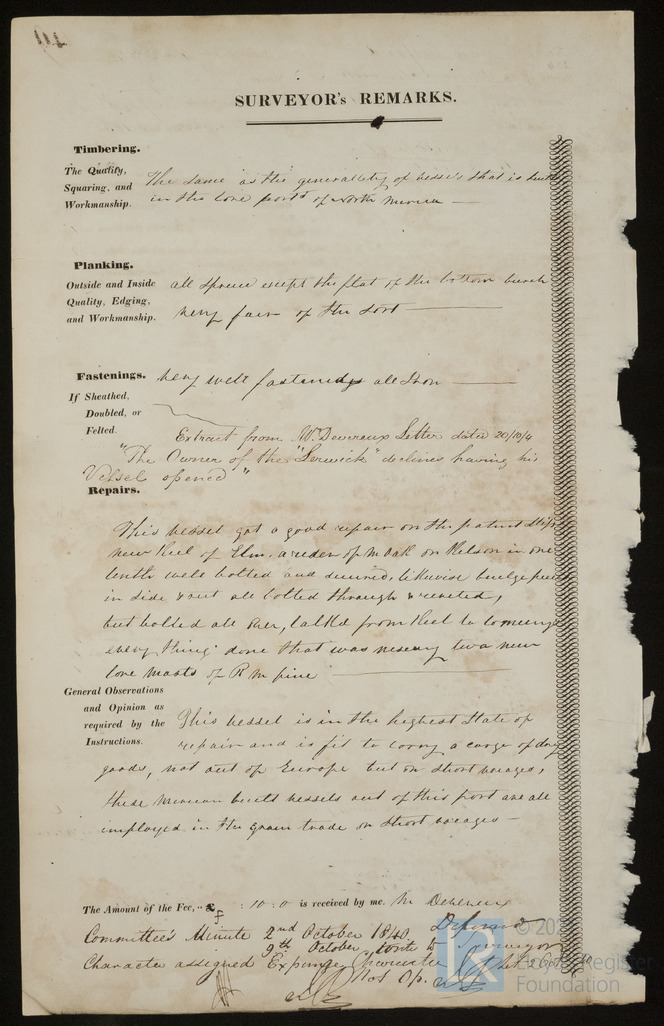 SURVEYOR's REMARKS.
Timbering.
The Quality,
Squaring, and
Workmanship.
The same as the generallity of vessels that is built
in the lore ports of North Merica —
Planking.
Outside and Inside
Quality, Edging,
and Workmanship.
all Spruce except the flat of the bottom burch
very fair of the sort —
Fastenings.
very well fastened all Iron —
If Sheathed,
Doubled, or
Felted.
Extract from Mr Devereux Letter dated 20/10/4
"The Owner of the "Lerwick" declines having his
Vessel opened"
Repairs.
This vessel got a good repair on the patent Slip
new Keel of Elm, a reder of M Oak on Kelson in one
lenth well bolted and secured, likewise buelge
in side & out all bolted through & reveted,
but bolted all over, calk'd from Keel to comeing
every thing done that was nesesary two new
lore masts of R M pine —
General Observations
and Opinion as
required by the
Instructions.
This vessel is in the highest State of
repair and is fit to carry a cargo of dry
goods, not out of Europe but on short voeages,
these Merican built vessels out of this port are all
imployed in the grain trade on short voeages —
The Amount of the Fee, £ : 10 : 0 is received by me. M Devereux
Committee's Minute 2nd October 1840
9th October
Character assigned Expunge Character
Not Op.
© 202
Lloyd's Register
Foundation